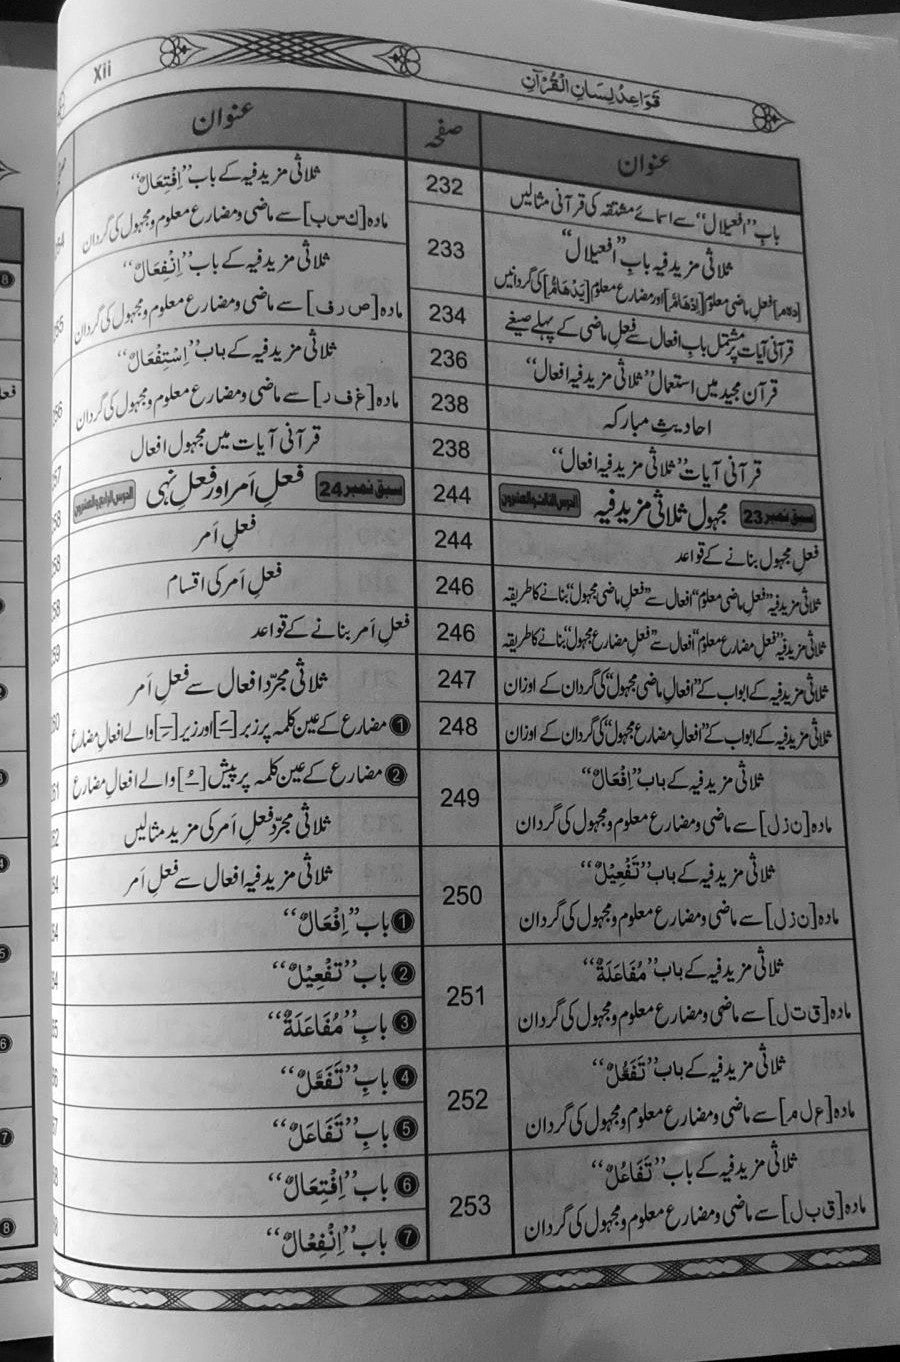 قَوَاعِدُ لِسَانِ الْقُرْآنِ
Xii
عنوان صفحہ
بابِ ”افعیلال“ سے اسمائے مشتقہ کی قرآنی مثالیں 232
ثلاثی مزید فیہ بابِ ”افعیلال“ 233
[دہم] فعلِ ماضی معلوم [اِدْهَامَّ] اور مضارع معلوم [يَدْهَامُّ] کی گردانیں
قرآنی آیات پر مشتمل بابِ افعال سے فعلِ ماضی کے پہلے صیغے 234
قرآن مجید میں استعمال ”ثلاثی مزید فیہ افعال“ 236
احادیثِ مبارکہ 238
قرآنی آیات ”ثلاثی مزید فیہ افعال“ 238
سبق نمبر 23 مجہول ثلاثی مزید فیہ الدرس الثالث والعشرون 244
فعلِ مجہول بنانے کے قواعد 244
ثلاثی مزید فیہ ”فعلِ ماضی معلوم“ افعال سے ”فعلِ ماضی مجہول“ بنانے کا طریقہ 246
ثلاثی مزید فیہ ”فعلِ مضارع معلوم“ افعال سے ”فعلِ مضارع مجہول“ بنانے کا طریقہ 246
ثلاثی مزید فیہ کے ابواب کے ”افعالِ ماضی مجہول“ کی گردان کے اوزان 247
ثلاثی مزید فیہ کے ابواب کے ”افعالِ مضارع مجہول“ کی گردان کے اوزان 248
ثلاثی مزید فیہ کے باب ”اِفْعَالٌ“ 249
مادہ [ن ز ل] سے ماضی و مضارع معلوم و مجہول کی گردان
ثلاثی مزید فیہ کے باب ”تَفْعِيْلٌ“ 250
مادہ [ن ز ل] سے ماضی و مضارع معلوم و مجہول کی گردان
ثلاثی مزید فیہ کے باب ”مُفَاعَلَةٌ“ 251
مادہ [ق ت ل] سے ماضی و مضارع معلوم و مجہول کی گردان
ثلاثی مزید فیہ کے باب ”تَفَعُّلٌ“ 252
مادہ [ع ل م] سے ماضی و مضارع معلوم و مجہول کی گردان
ثلاثی مزید فیہ کے باب ”تَفَاعُلٌ“ 253
مادہ [ق ب ل] سے ماضی و مضارع معلوم و مجہول کی گردان
عنوان
ثلاثی مزید فیہ کے باب ”اِفْتِعَالٌ“
مادہ [ک س ب] سے ماضی و مضارع معلوم و مجہول کی گردان
ثلاثی مزید فیہ کے باب ”اِنْفِعَالٌ“
مادہ [ص ر ف] سے ماضی و مضارع معلوم و مجہول کی گردان
ثلاثی مزید فیہ کے باب ”اِسْتِفْعَالٌ“
مادہ [غ ف ر] سے ماضی و مضارع معلوم و مجہول کی گردان
قرآنی آیات میں مجہول افعال
سبق نمبر 24 فعلِ اَمر اور فعلِ نہی الدرس الرابع والعشرون
فعلِ اَمر
فعلِ اَمر کی اقسام
فعلِ اَمر بنانے کے قواعد
ثلاثی مجرّد افعال سے فعلِ اَمر
❶ مضارع کے عین کلمہ پر زبر [ـَ] اور زیر [ـِ] والے افعالِ مضارع
❷ مضارع کے عین کلمہ پر پیش [ـُ] والے افعالِ مضارع
ثلاثی مجرّد فعلِ اَمر کی مزید مثالیں
ثلاثی مزید فیہ افعال سے فعلِ اَمر
❶ باب ”اِفْعَالٌ“
❷ باب ”تَفْعِيْلٌ“
❸ بابِ ”مُفَاعَلَةٌ“
❹ بابِ ”تَفَعَّلٌ“
❺ بابِ ”تَفَاعَلٌ“
❻ باب ”اِفْتِعَالٌ“
❼ باب ”اِنْفِعْالٌ“